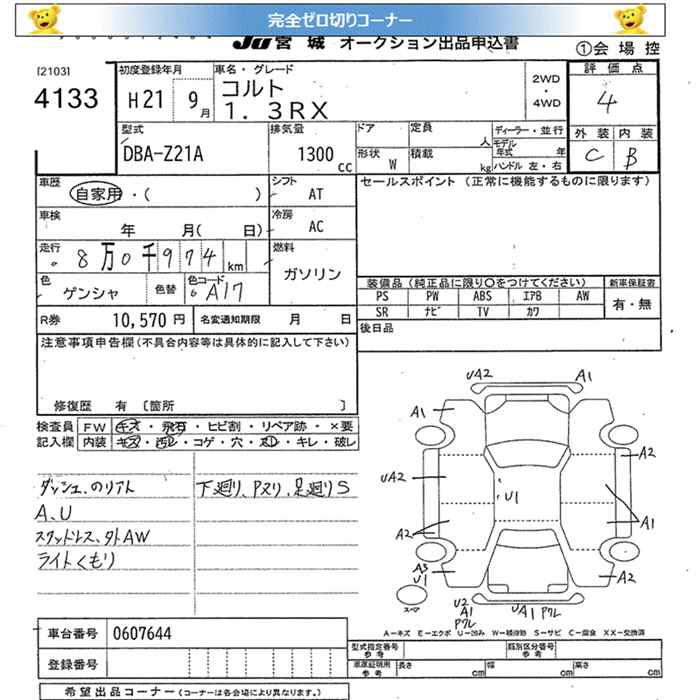 完全ゼロ切りコーナー
JU宮城 オークション出品申込書
①会場控
[2103]
4133
初度登録年月
H21 9月
車名・グレード
コルト
1.3RX
2WD
・
4WD
評価点
4
型式
DBA-Z21A
排気量
1300cc
ドア
定員 人
ディーラー・並行
モデル年式 年
形状 W
積載 kg
ハンドル 左・右
外装 内装
C B
車歴
自家用・( )
シフト
AT
セールスポイント (正常に機能するものに限ります)
車検
年 月( 日)
冷房
AC
走行
8万0千974km
燃料
ガソリン
色
ゲンシャ
色替
色コード
A17
装備品(純正品に限り○をつけてください)
新車保証書
PS PW ABS エアB AW
SR ナビ TV カワ
有・無
R券 10,570円
名変通知期限 月 日
後日品
注意事項申告欄(不具合内容等は具体的に記入して下さい)
修復歴 有 〔箇所 〕
検査員 FW キズ・飛石・ヒビ割・リペア跡・×要
記入欄 内装 キズ・コゲ・穴・キレ・破レ
A,U
スタッドレス、社外AW
ライトくもり
下廻り、Pヌリ、足廻りS
UA2
A1
A1
A2
UA2
U1
A2
A1
A3
U1
A2
スペア
U2
A1
Pワレ
UA1 Pワレ
A-キズ E-エクボ U-凹み W-補修跡 S-サビ C-腐食 XX-交換済
車台番号 0607644
登録番号
型式指定番号
参考
類別区分番号
参考
車庫証明用
参考
長さ cm 幅 cm 高さ cm
希望出品コーナー(コーナーは各会場により異なります。)